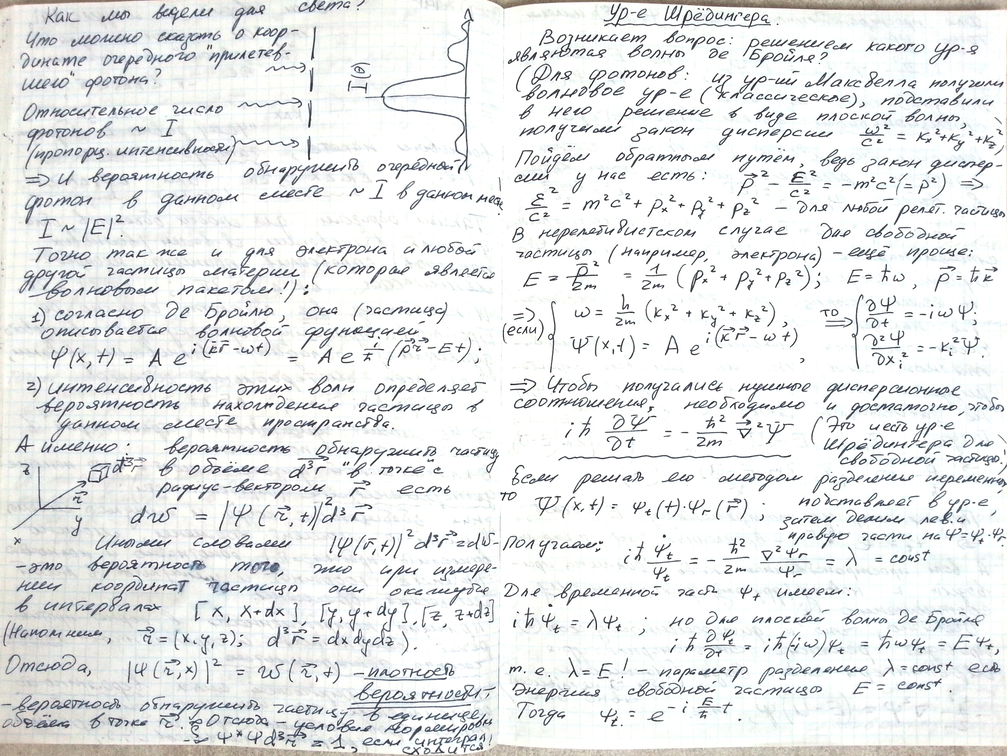 Как мы видели для света?
Что можно сказать о коор-
динате очередного "прилетев-
шего" фотона?
Относительное число
фотонов ~ I
(пропорц. интенсивности)
I(θ)
⇒ И вероятность обнаружить очередной
фотон в данном месте ~ I в данном месте
I ~ |E|².
Точно так же и для электрона и любой
другой частицы материи (которая является
волновым пакетом!):
1) согласно де Бройлю, она (частица)
описывается волновой функцией
Ψ(x,t) = A e^{i(k⃗r⃗-ωt)} = A e^{\frac{i}{ħ}(p⃗r⃗-Et)};
2) интенсивность этих волн определяет
вероятность нахождения частицы в
данном месте пространства.
А именно: вероятность обнаружить частицу
в объёме d³r⃗ "в точке с
радиус-вектором r⃗ есть
z d³r⃗ r⃗ y x
dw = |Ψ(r⃗,t)|² d³r⃗
Иными словами |Ψ(r⃗,t)|² d³r⃗ = dw -
- это вероятность того, что при измере-
нии координат частицы они окажутся
в интервалах [x, x+dx], [y, y+dy], [z, z+dz]
(Напомним, r⃗ = (x,y,z); d³r⃗ = dxdydz).
Отсюда, |Ψ(r⃗,x)|² = w(r⃗,t) - плотность
вероятности -
- вероятность обнаружить частицу в единице
объёма в точке r⃗. Отсюда - условие нормировки
∫Ψ*Ψd³r⃗ = 1, если интеграл
сходится!
Ур-е Шрёдингера.
Возникает вопрос: решением какого ур-я
являются волны де Бройля?
(Для фотонов: из ур-ий Максвелла получили
волновое ур-е (классическое), подставили
в него решение в виде плоской волны,
получили закон дисперсии ω²/c² = kx²+ky²+kz²)
Пойдём обратным путём, ведь закон диспер-
сии у нас есть: p⃗² - ε²/c² = -m²c² (= p²) ⇒
ε²/c² = m²c² + px² + py² + pz² - для любой релят. частицы
В нерелятивистском случае для свободной
частицы (например, электрона) - ещё проще:
E = p⃗²/2m = 1/2m (px² + py² + pz²); E = ħω, p⃗ = ħk⃗
⇒ (если) { ω = ħ/2m (kx² + ky² + kz²), то ⇒ { ∂Ψ/∂t = -iωΨ;
Ψ(x,t) = A e^{i(k⃗r⃗-ωt)}, ∂²Ψ/∂xi² = -ki²Ψ.
⇒ Чтобы получались нужные дисперсионные
соотношения, необходимо и достаточно, чтобы
iħ ∂Ψ/∂t = -ħ²/2m ∇⃗²Ψ (Это и есть ур-е
Шрёдингера для
свободной частицы)
Если решать его методом разделения переменных
то Ψ(x,t) = Ψt(t)·Ψr(r⃗); подставляем в ур-е,
затем делим лев. и
правую части на Ψ=Ψt·Ψr
Получаем: iħ Ψ̇t/Ψt = -ħ²/2m ∇²Ψr/Ψr = λ = const
Для временной части Ψt имеем:
iħΨ̇t = λΨt; но для плоской волны де Бройля
iħ ∂Ψt/∂t = iħ(iω)Ψt = ħωΨt = EΨt,
т.е. λ = E! - параметр разделения λ=const есть
энергия свободной частицы E = const.
Тогда Ψt = e^{-i\frac{E}{ħ}t}.